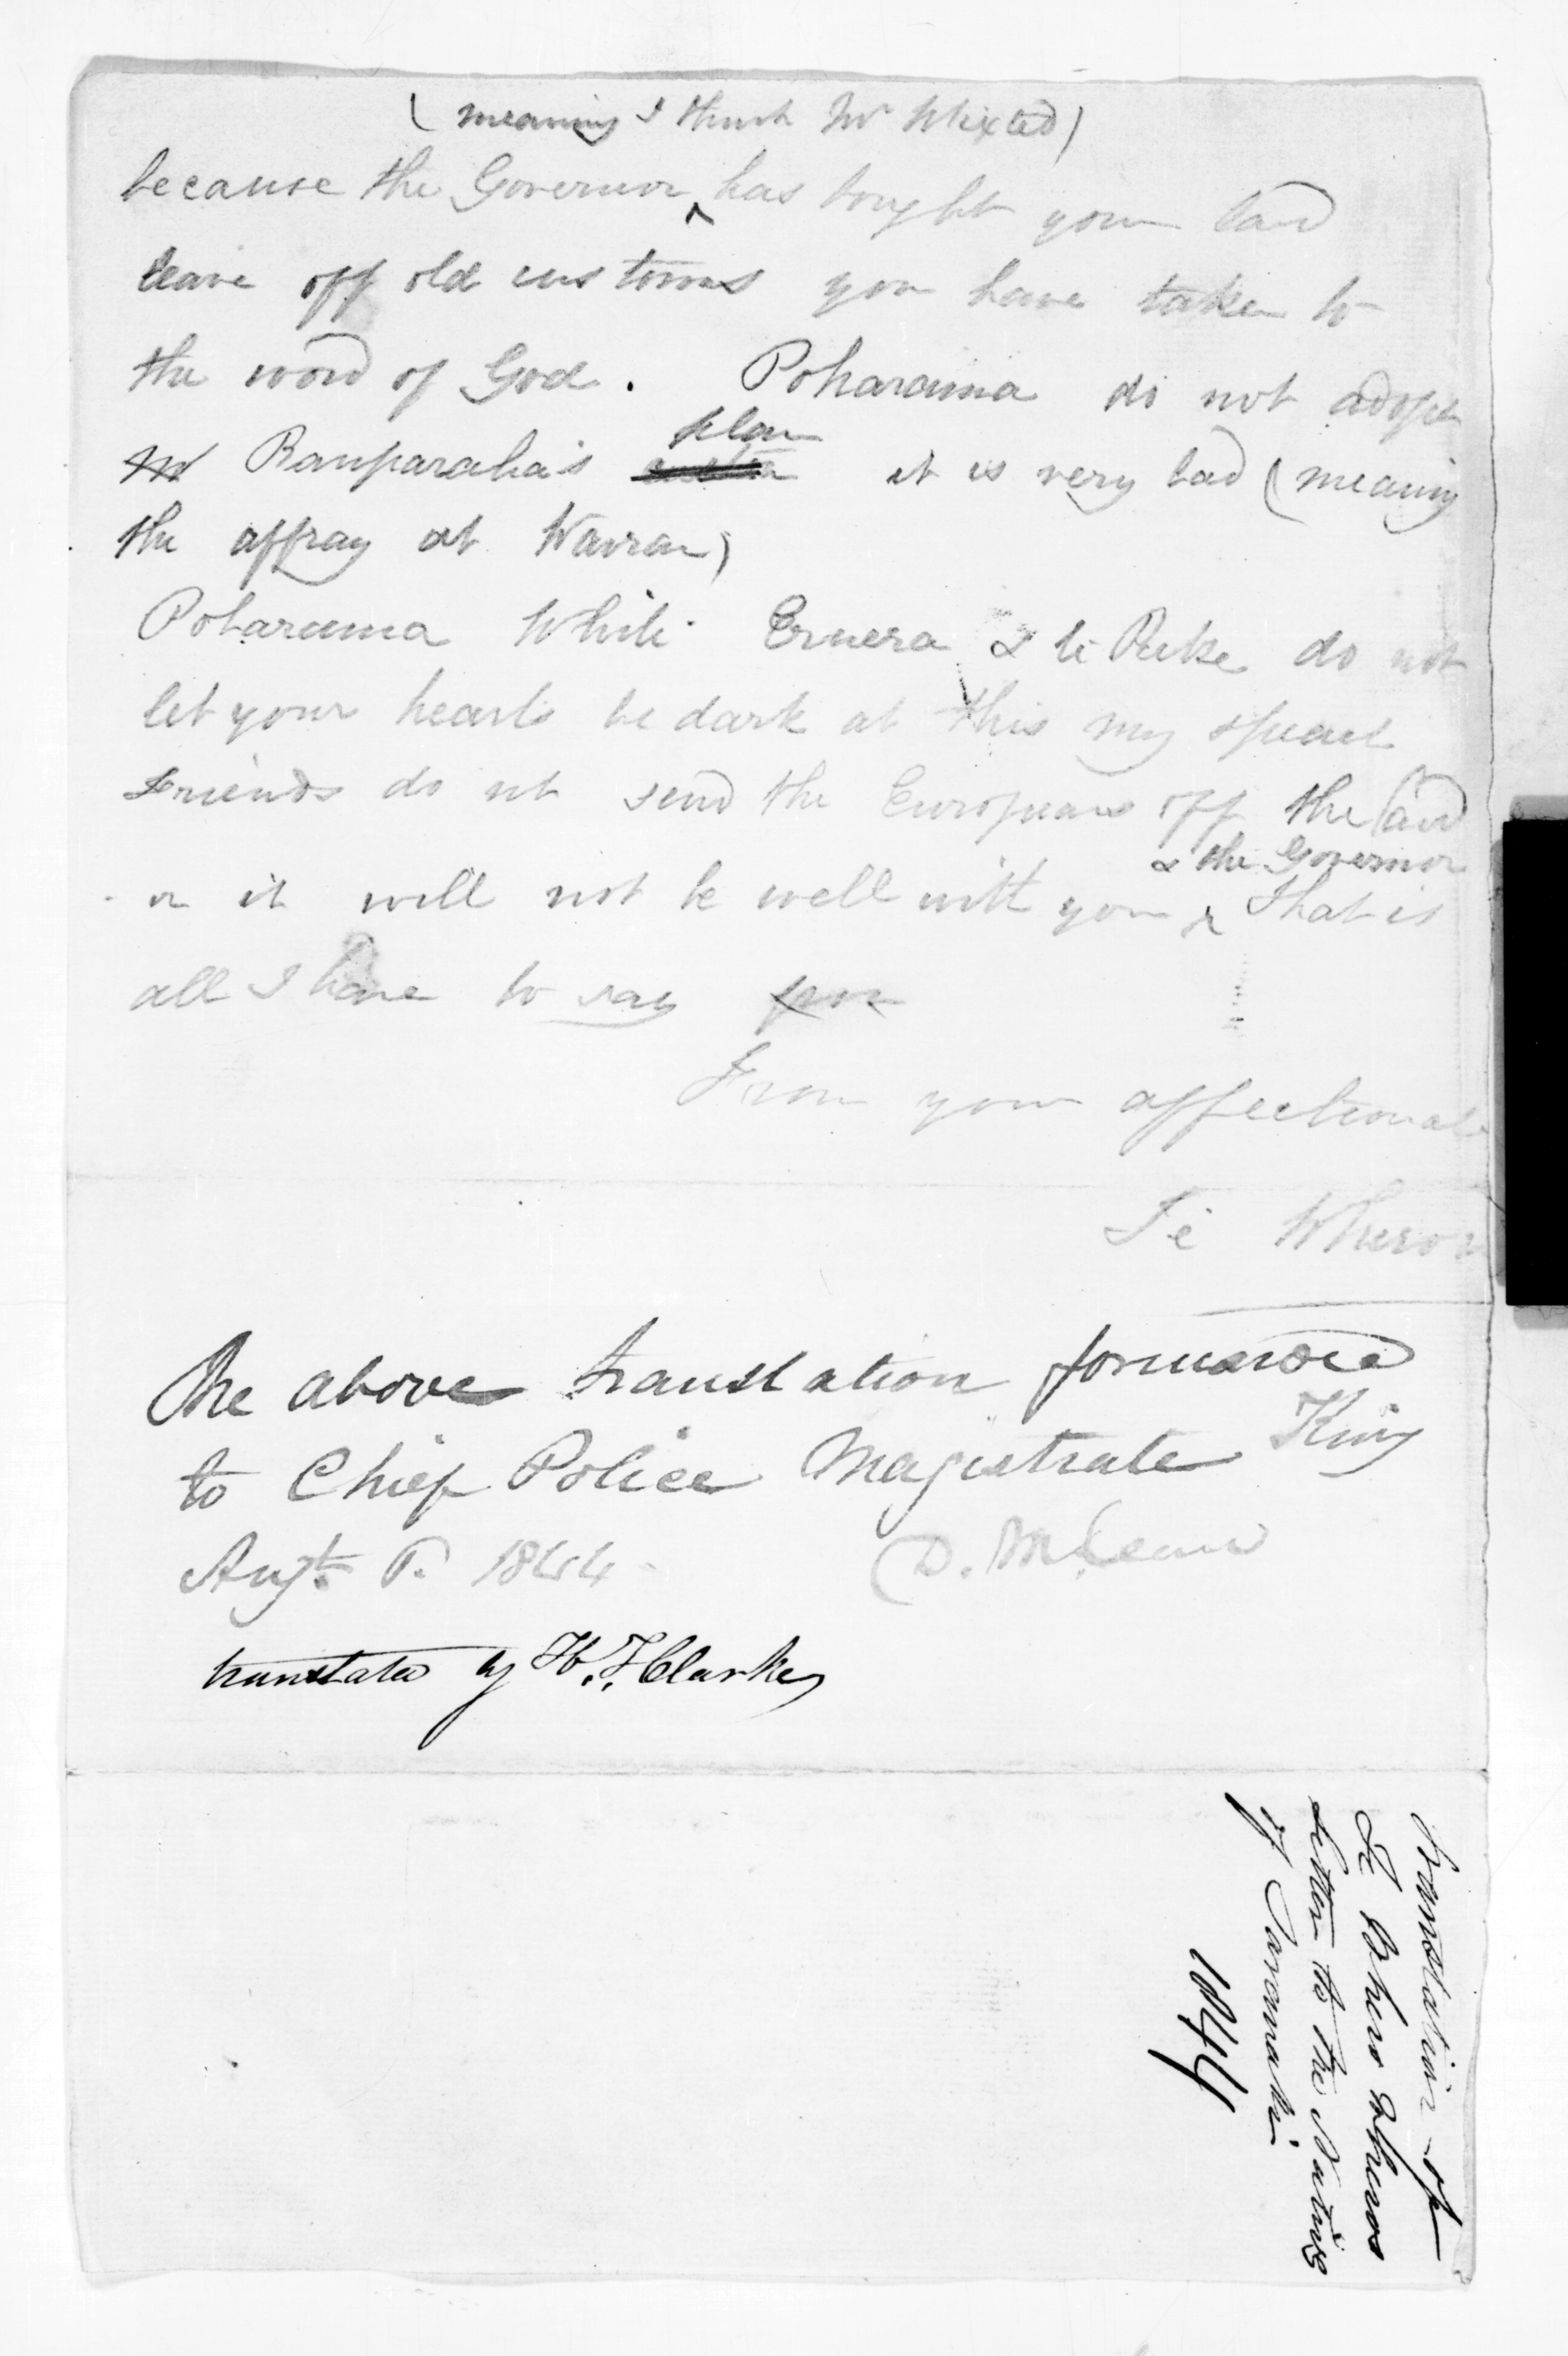 (meaning I think Mr Wixted)
because the Governor ^ has bought your land
leave off old customs you have taken to
the word of God. Poharama do not adopt
plan
Rauparaha's it is very bad (meaning
the affray at Wairau)
Poharama Whiti Eruera & te Puke do not
let your hearts be dark at this my
friends do not send the Europeans off the land
& the Governor
or it will not be well with you ^ that is
all I have to say
From your affectionate
Te Whero
The above translation forwarded
to Chief Police Magistrate King
Augt. 1844 D. McLean
translated by H. T. Clarke
translation of
Te Whero Wheros
letter to the Natives
of Taranaki
1844